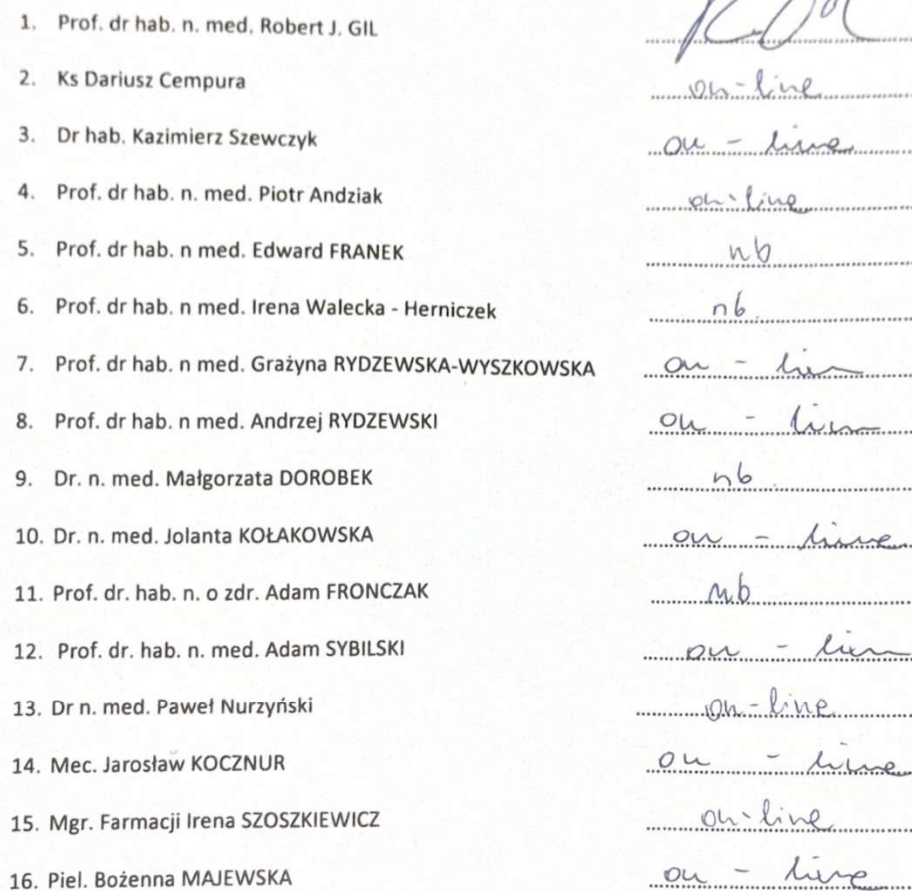 1. Prof. dr hab. n. med. Robert J. GIL
2. Ks Dariusz Cempura on-line
3. Dr hab. Kazimierz Szewczyk on - line
4. Prof. dr hab. n. med. Piotr Andziak on-line
5. Prof. dr hab. n med. Edward FRANEK nb
6. Prof. dr hab. n med. Irena Walecka - Herniczek nb
7. Prof. dr hab. n med. Grażyna RYDZEWSKA-WYSZKOWSKA on - line
8. Prof. dr hab. n med. Andrzej RYDZEWSKI on - line
9. Dr. n. med. Małgorzata DOROBEK nb
10. Dr. n. med. Jolanta KOŁAKOWSKA on - line
11. Prof. dr. hab. n. o zdr. Adam FRONCZAK nb
12. Prof. dr. hab. n. med. Adam SYBILSKI on - line
13. Dr n. med. Paweł Nurzyński on-line
14. Mec. Jarosław KOCZNUR on - line
15. Mgr. Farmacji Irena SZOSZKIEWICZ on-line
16. Piel. Bożenna MAJEWSKA on - line